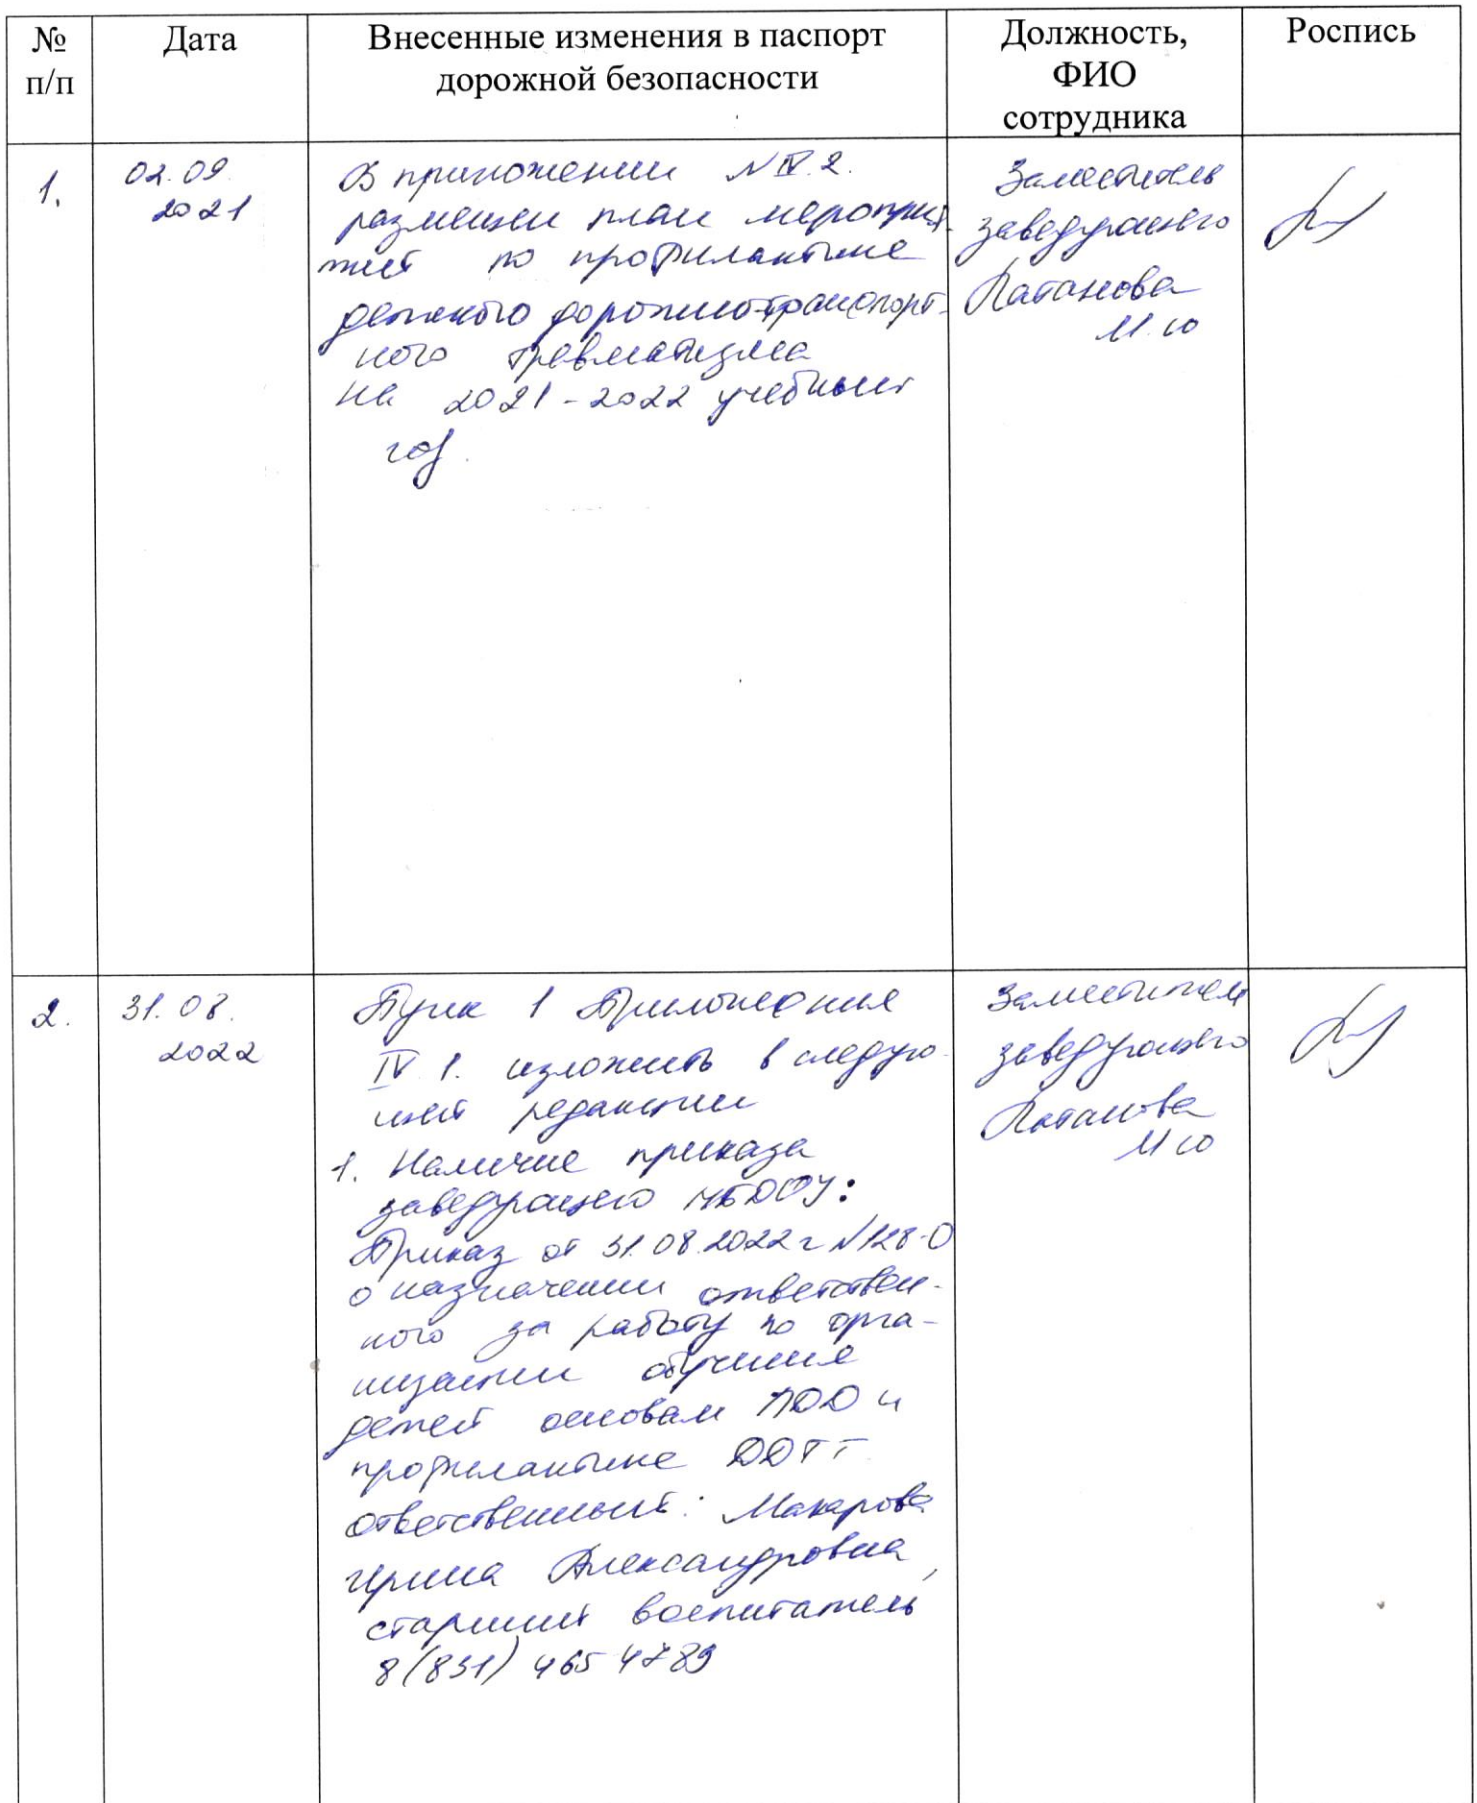 № п/п
Дата
Внесенные изменения в паспорт
дорожной безопасности
Должность,
ФИО
сотрудника
Роспись
1.
02.09.
2021
В приложении N IV.2.
размещен план мероприя-
тий по профилактике
детского дорожно-транспорт-
ного травматизма
на 2021-2022 учебный
год.
Заместитель
заведующего
Патанова
М.Ю
2.
31.08.
2022
Пунк 1 Приложения
IV 1. изложить в следую-
щей редакции
1. Наличие приказа
заведующего МБДОУ:
Приказ от 31.08.2022 г N128-О
о назначении ответствен-
ного за работу по орга-
низации обучения
детей основам ПДД и
профилактике ДДТТ
ответственный: Макарова
Ирина Александровна,
старший воспитатель
8(831) 465 4789
Заместитель
заведующего
Патанова
М Ю